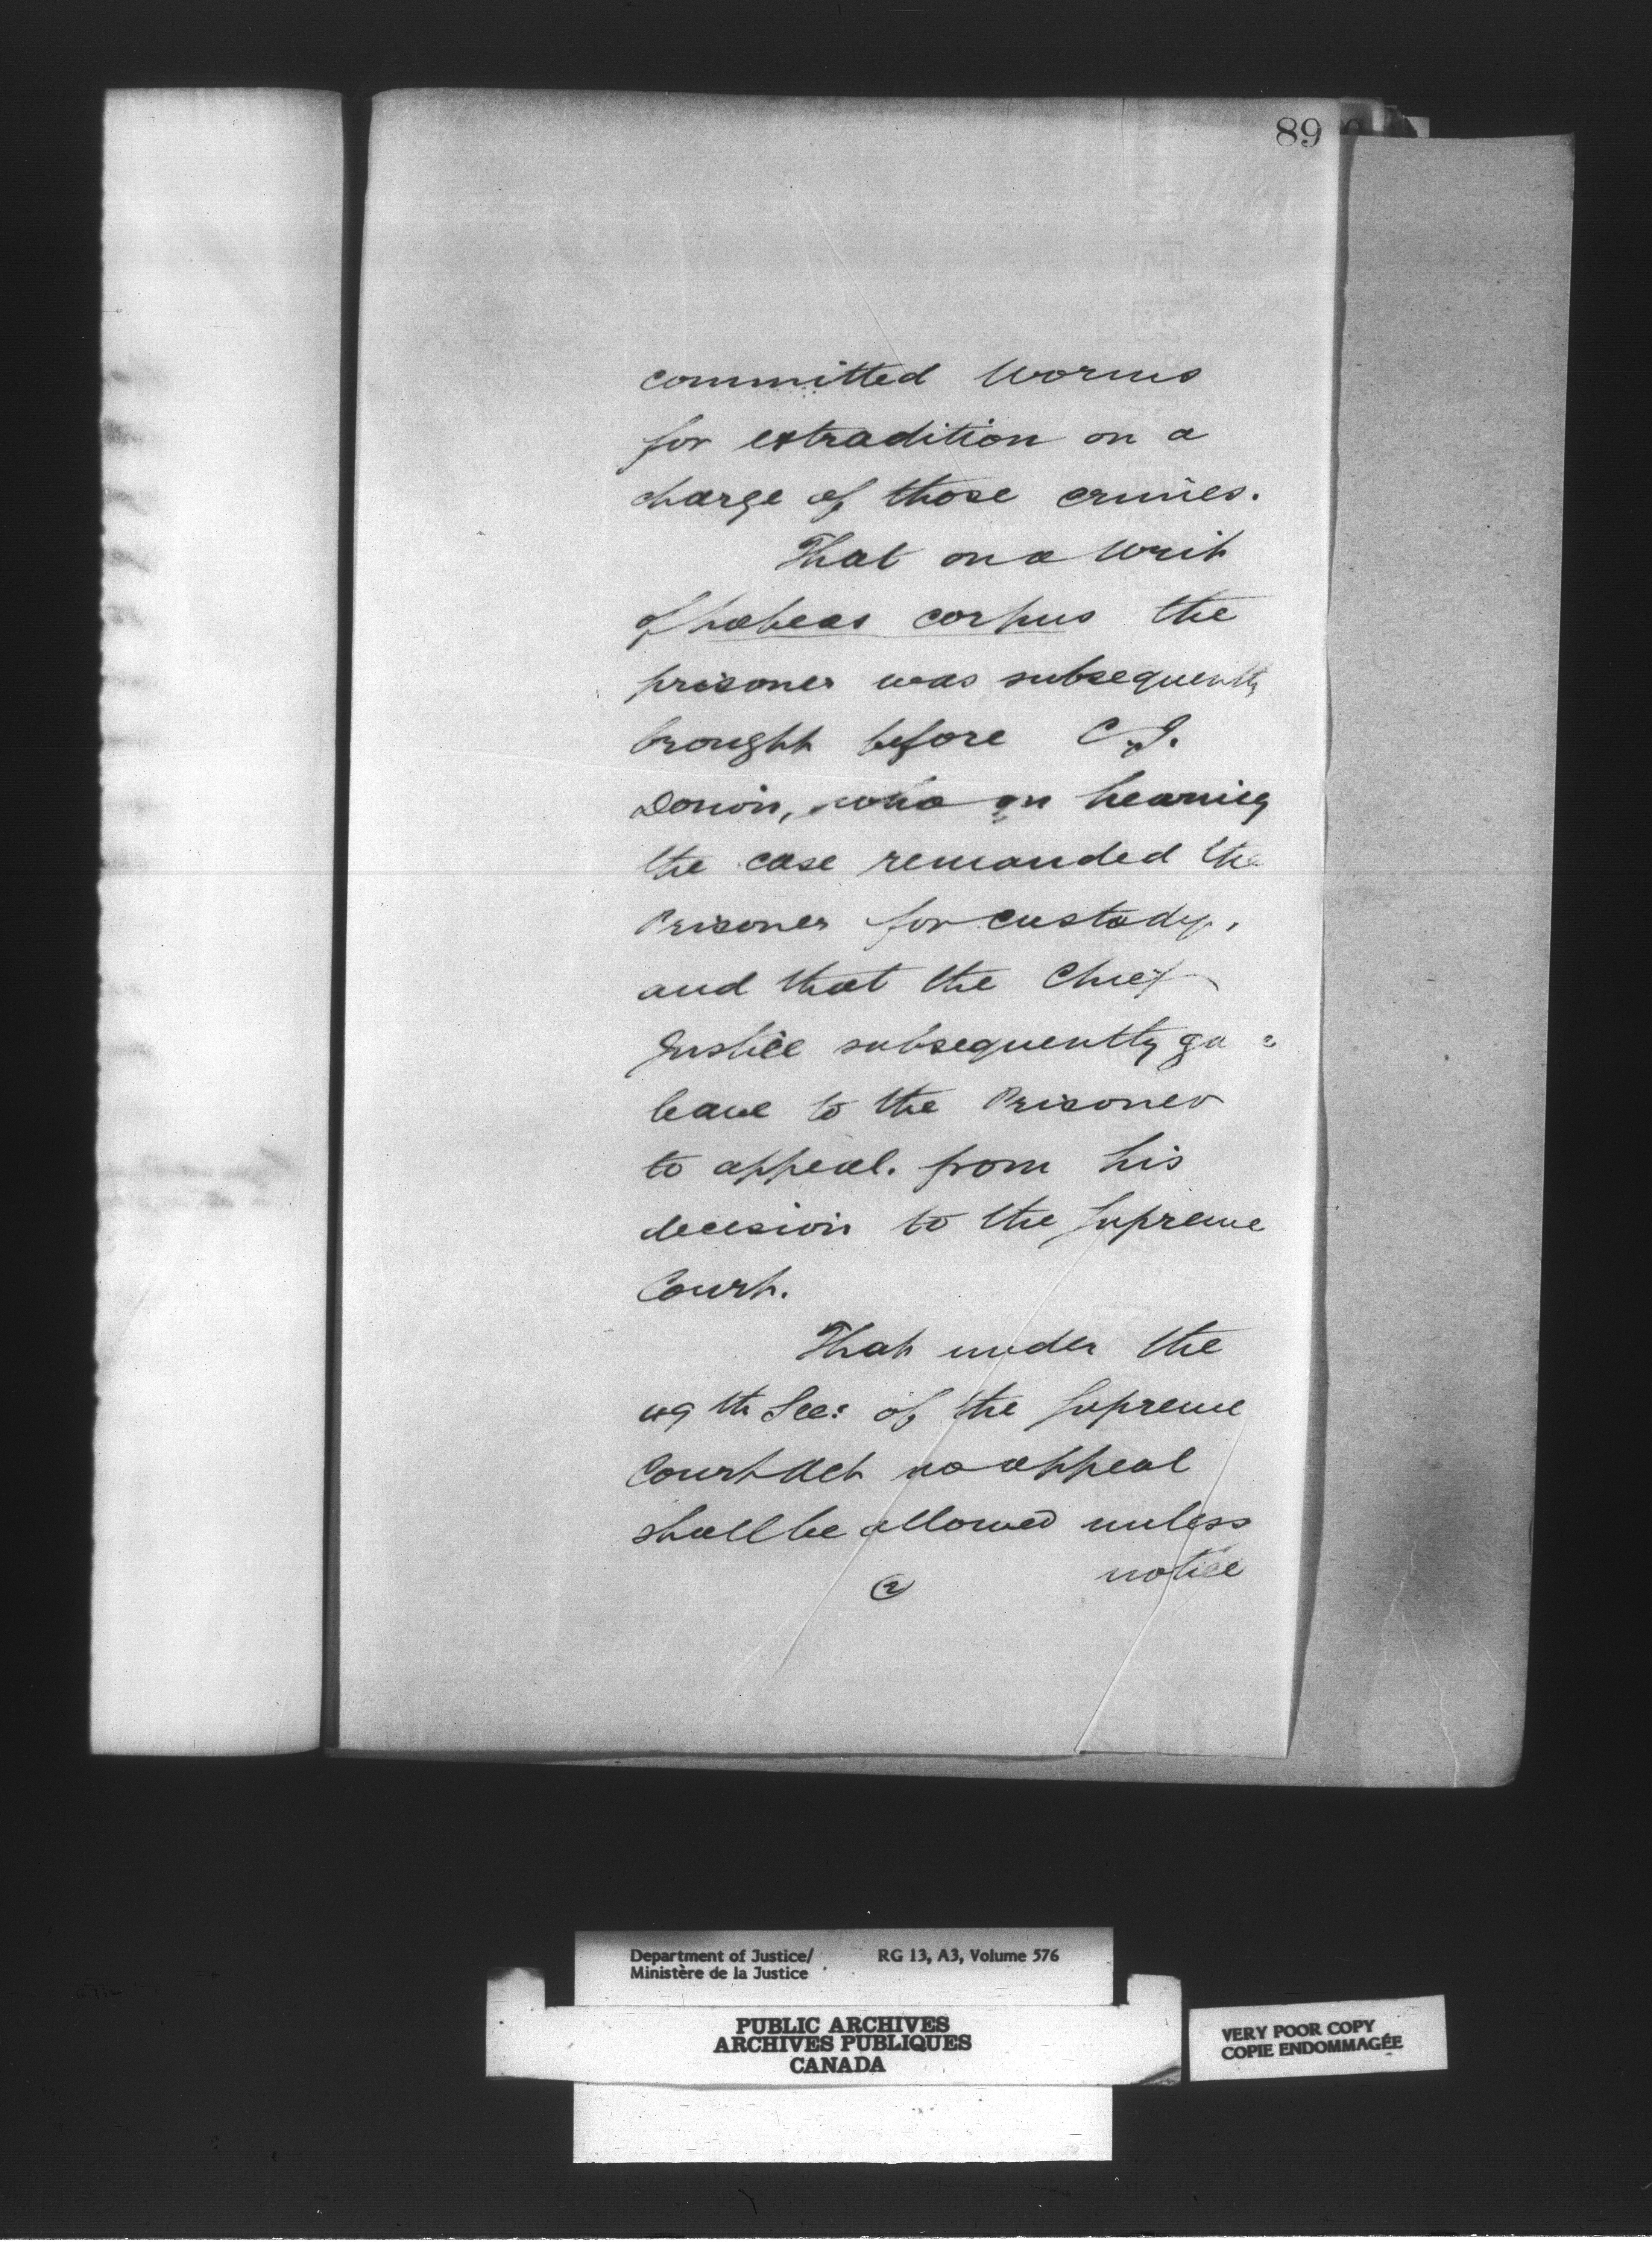 89
committed Worms
for extradition on a
charge of those crimes.
That on a Writ
of habeas corpus the
prisoner was subsequently
brought before C.J.
Dorion, who on hearing
the case remanded the
Prisoner for custody,
and that the Chief
Justice subsequently ga e
leave to the Prisoner
to appeal. from his
decision to the Supreme
Court.
That under the
49th Sec: of the Supreme
Court Act no appeal
shall be allowed unless
notice
(2)
Department of Justice/ RG 13, A3, Volume 576
Ministère de la Justice
PUBLIC ARCHIVES
ARCHIVES PUBLIQUES
CANADA
VERY POOR COPY
COPIE ENDOMMAGÉE